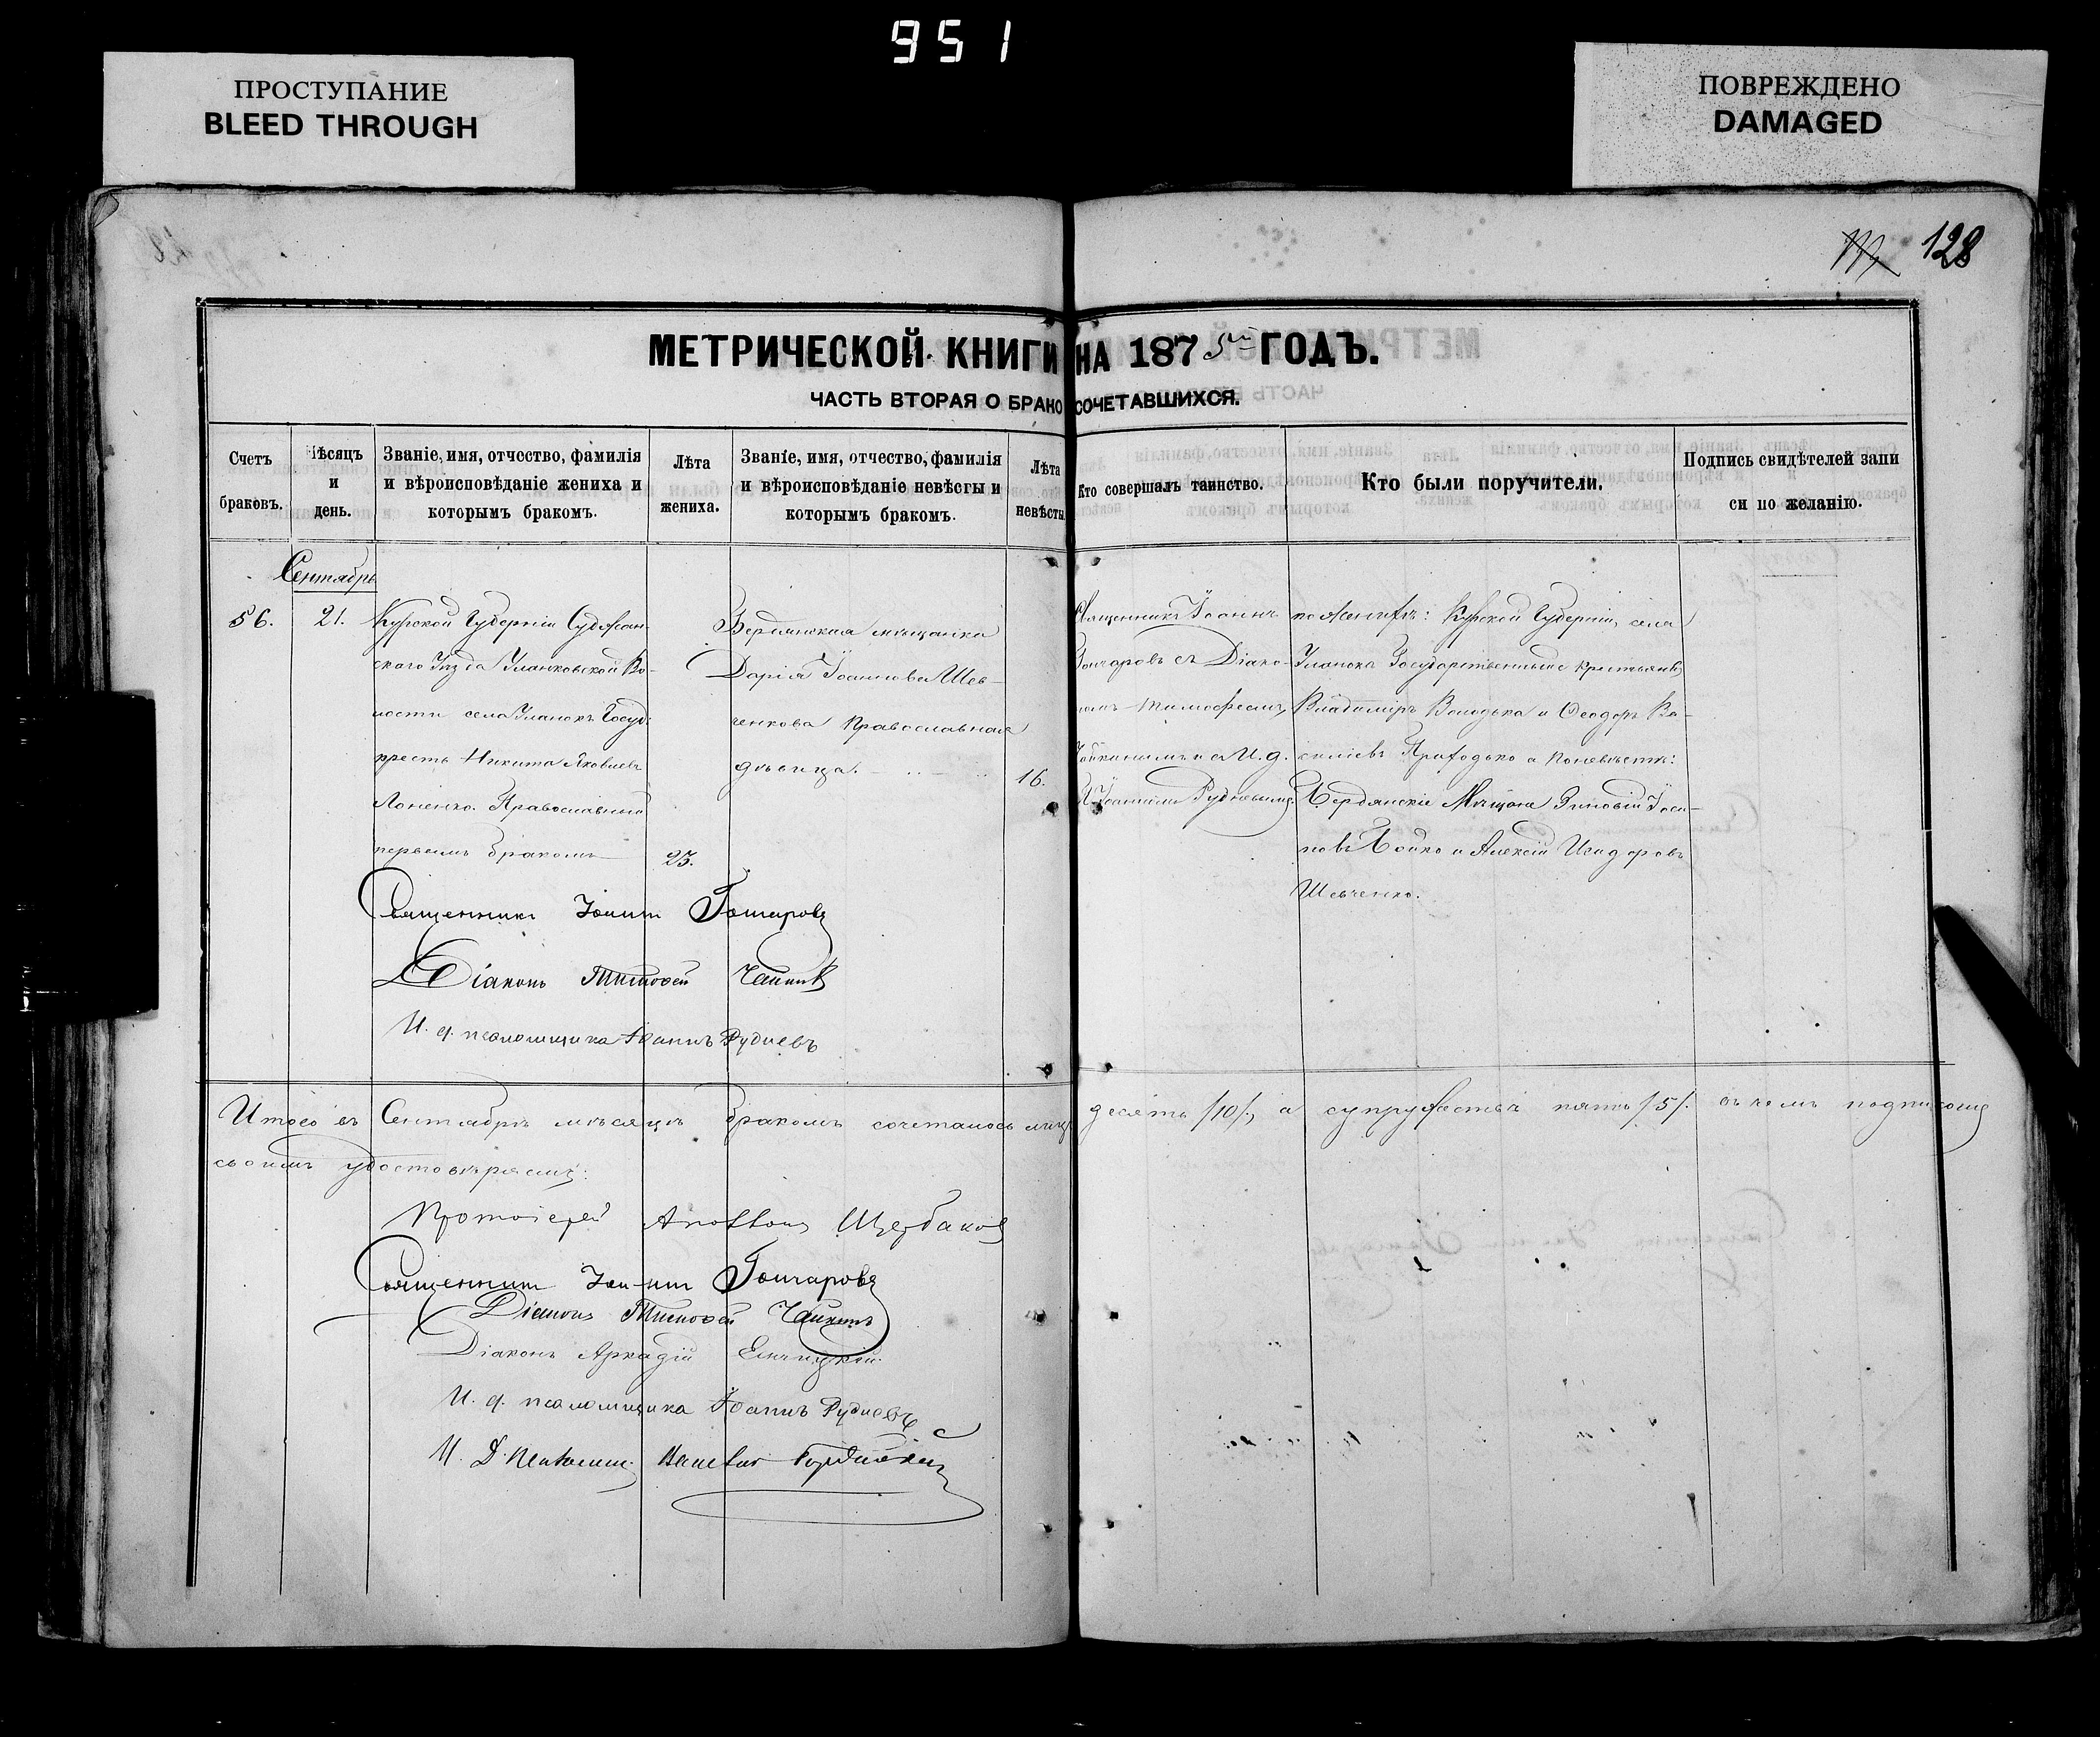 951
ПРОСТУПАНИЕ
BLEED THROUGH
ПОВРЕЖДЕНО
DAMAGED
128
МЕТРИЧЕСКОЙ КНИГИ НА 1875 ГОДЪ.
ЧАСТЬ ВТОРАЯ О БРАКОСОЧЕТАВШИХСЯ.
Счетъ браковъ.
Мѣсяцъ и день.
Званіе, имя, отчество, фамилія
и вѣроисповѣданіе жениха и
которымъ бракомъ.
Лѣта жениха.
Званіе, имя, отчество, фамилія
и вѣроисповѣданіе невѣсты и
которымъ бракомъ.
Лѣта невѣсты
Кто совершалъ таинство.
Кто были поручители.
Подпись свидѣтелей запи
си по желанію.
Сентябрь
56.
21.
Курской Губерніи Суджан-
скаго Уѣзда Уланковской Во-
лости села Уланокъ Госуд:
крест. Никита Яковлевъ
Православный
первымъ бракомъ
23.
Бердянская мѣщанка
Дарія Іоаннова Шев-
ченкова Православная
дѣвица.
16.
Священникъ Іоаннъ
Гончаровъ съ Діако-
номъ Тимофеемъ
и И. д.
Іоанномъ Рудневымъ.
по женихѣ: Курской Губерніи, села
Уланокъ Государственные крестьяне
Владиміръ Володька и Ѳеодоръ Ва-
силіевъ Приходько а по невѣстѣ:
Бердянскіе Мѣщане Зиновій Іоси-
повъ Бойко и Алексій Исидоровъ
Шевченко.
Священникъ Іоаннъ Гончаровъ
Діаконъ Тимофей
И. д. псаломщика Іоаннъ Рудневъ
Итого въ Сентябрѣ мѣсяцѣ бракомъ сочеталось лицъ десять /10/, а супружествъ пять /5/. въ чемъ подписомъ
своимъ удостовѣряемъ:
Протоіерей Щербаковъ
Священникъ Іоаннъ Гончаровъ
Діаконъ Тимофей
Діаконъ Аркадій
И. д. псаломщика Іоаннъ Рудневъ
И. Д.